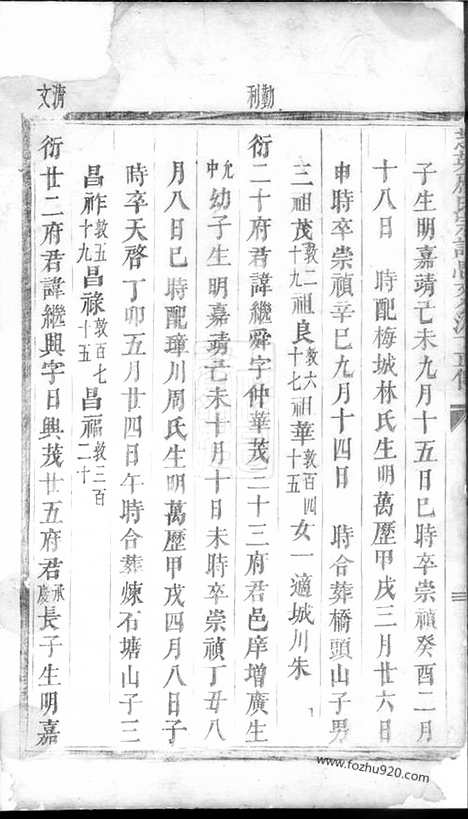 勤利
濟文
子生明嘉靖己未九月十五日巳時卒崇禎癸酉二月
十八日　時配梅城林氏生明萬歷甲戌三月廿六日
申時卒崇禎辛巳九月十四日　時合葬橋頭山子男
三祖茂敦二十九祖良敦六十七祖華敦百四十五女一適城川朱
衍二十府君諱繼舜字仲華茂三十三府君邑庠增廣生
允中幼子生明嘉靖己未十月十日未時卒崇禎丁丑八
月八日巳時配璋川周氏生明萬歷甲戌四月八日子
時卒天啓丁卯五月廿四日午時合葬煉石塘山子三
昌祚敦五十九昌祿敦百七十五昌福敦三百二十
衍廿二府君諱繼興字日興茂廿五府君承慶長子生明嘉
www.fozhu920.com